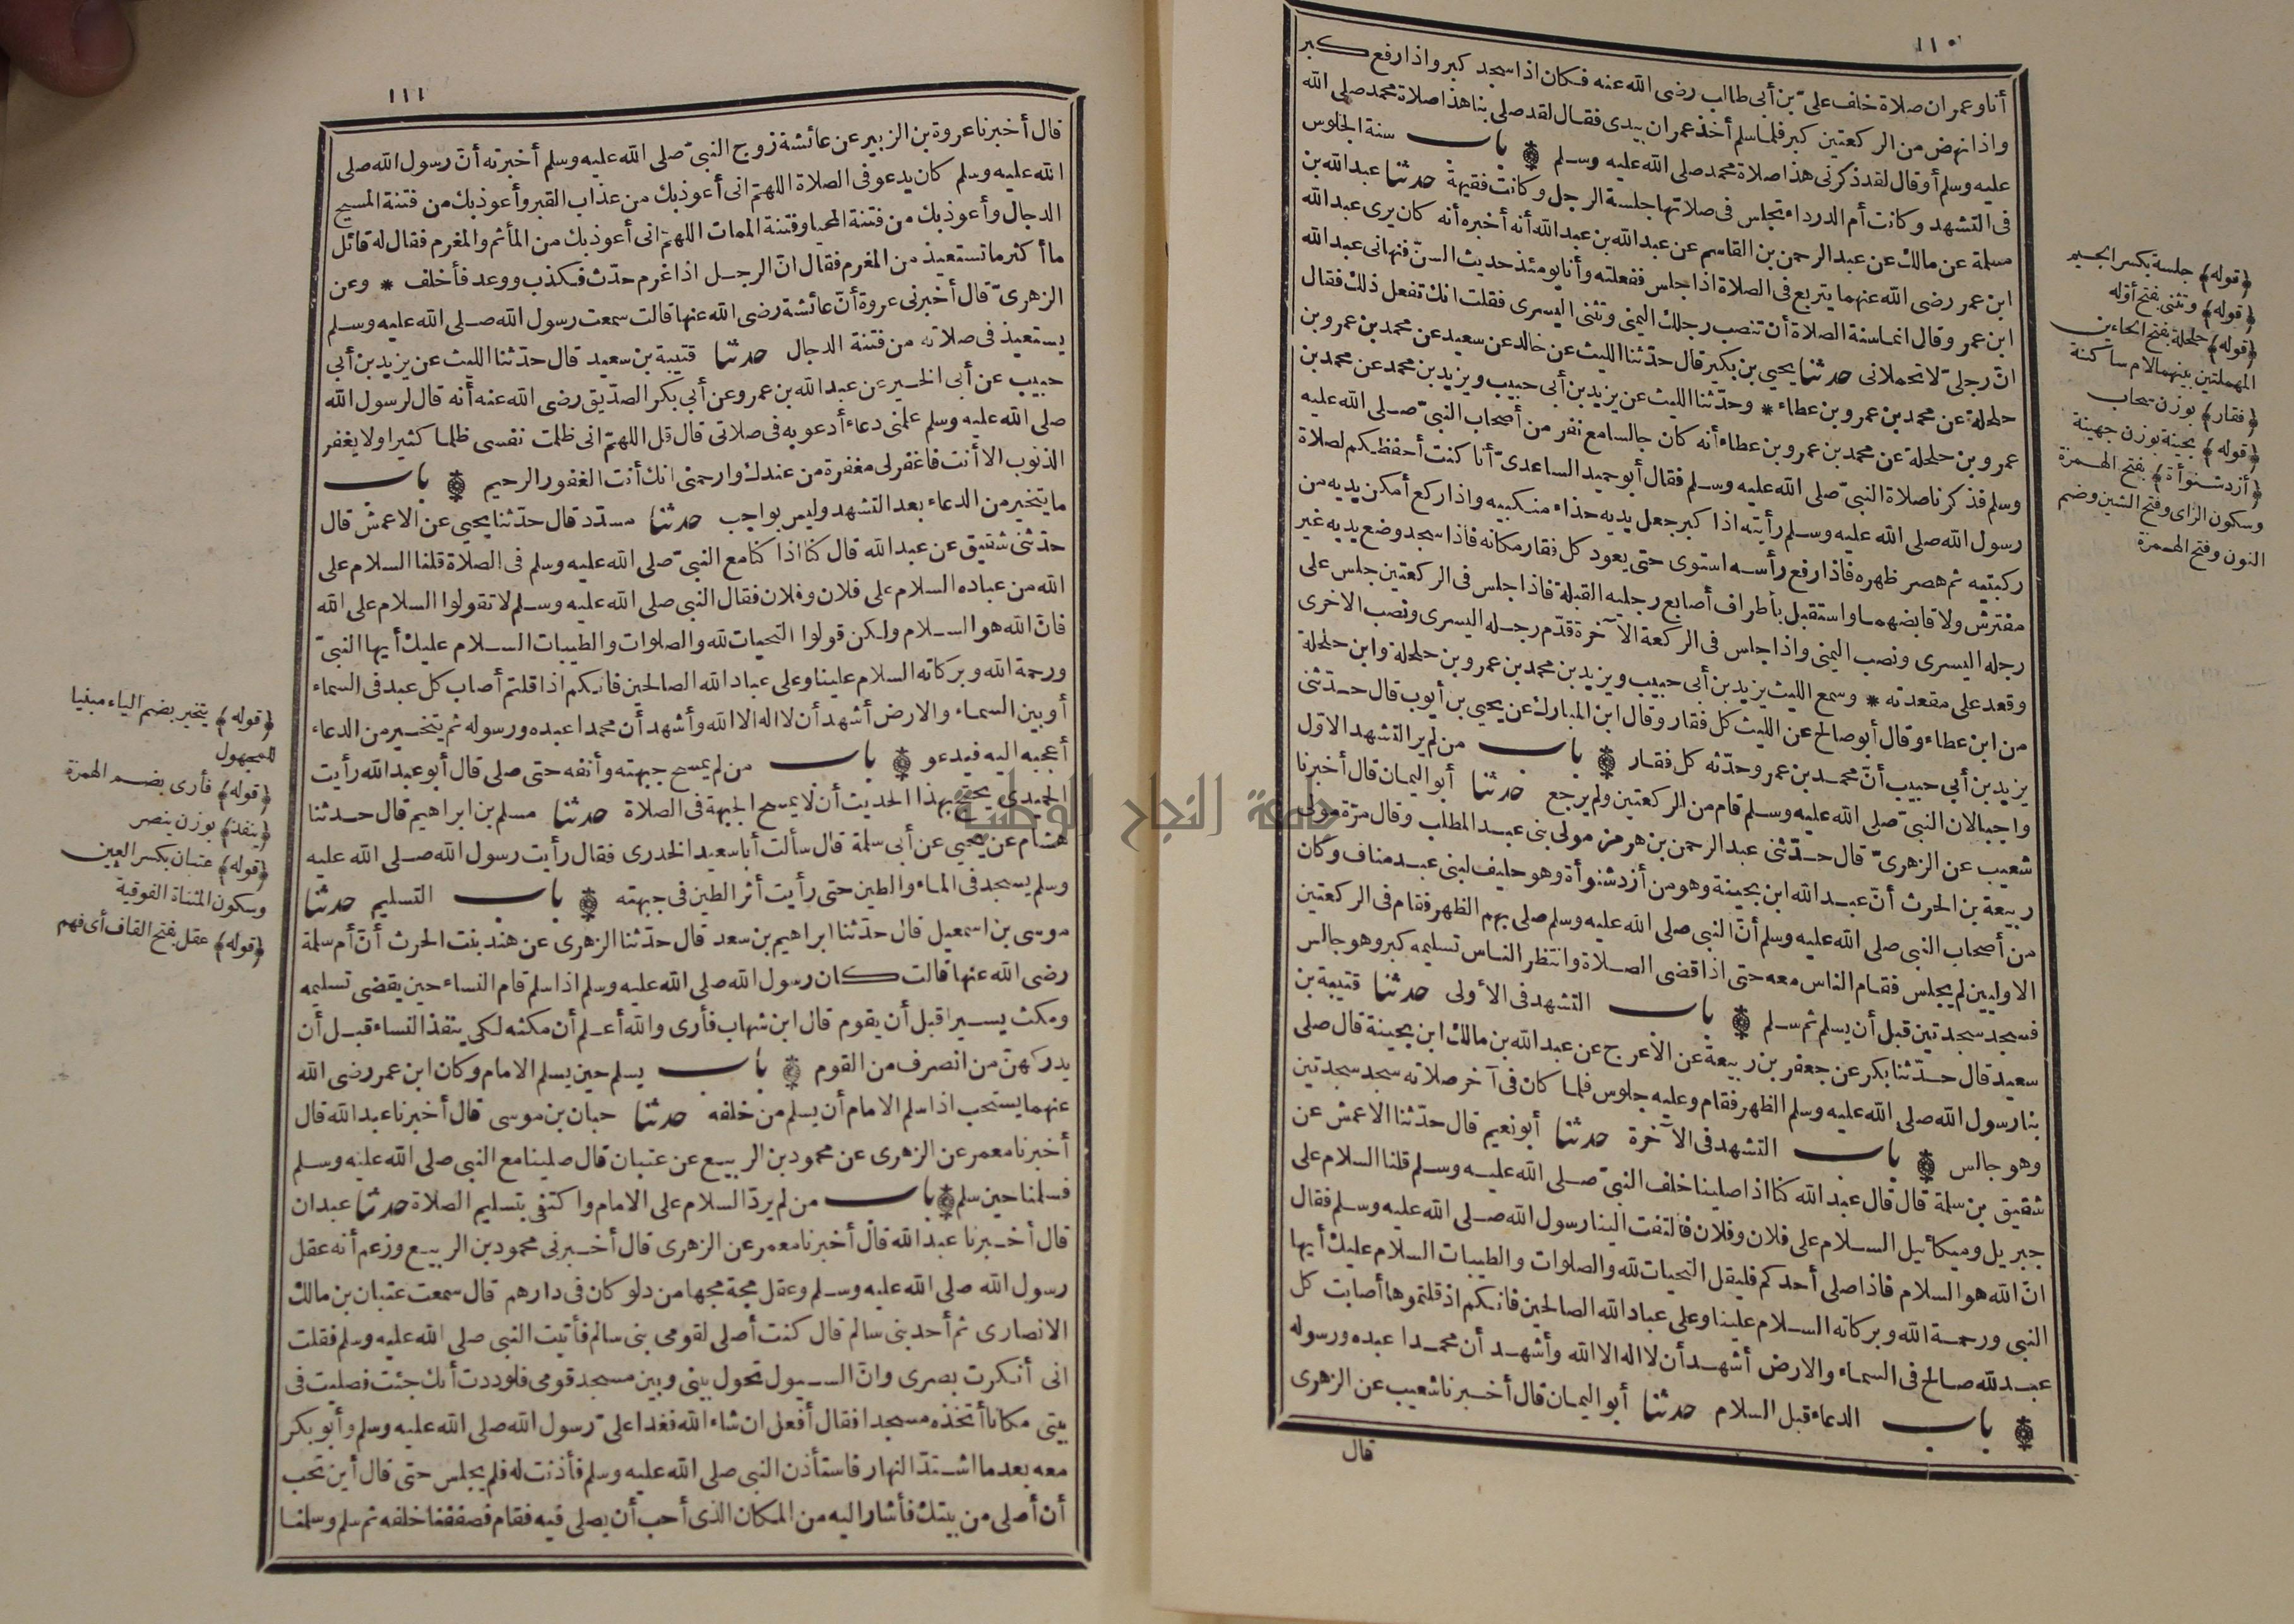 ١١٠
أنا وعمران صلاة خلف علىّ بن أبى طالب رضى الله عنه فكان اذا سجد كبر واذا رفع كبر
واذا نهض من الركعتين كبر فلما سلم أخذ عمران بيدى فقال لقد صلى بنا هذا صلاة محمد صلى الله
عليه وسلم أو قال لقد ذكرنى هذا صلاة محمد صلى الله عليه وسلم باب سنة الجلوس
فى التشهد وكانت أم الدرداء تجلس فى صلاتها جلسة الرجل وكانت فقيهة حدثنا عبد الله بن
مسلمة عن مالك عن عبد الرحمن بن القاسم عن عبد الله بن عبد الله أنه أخبره أنه كان يرى عبد الله
ابن عمر رضى الله عنهما يتربع فى الصلاة اذا جلس ففعلته وأنا يومئذ حديث السنّ فنهانى عبد الله
ابن عمر وقال انما سنة الصلاة أن تنصب رجلك اليمنى وتثنى اليسرى فقلت انك تفعل ذلك فقال
انّ رجلىّ لا تحملانى حدثنا يحيى بن بكير قال حدّثنا الليث عن خالد عن سعيد عن محمد بن عمرو بن
حلحلة عن محمد بن عمرو بن عطاء * وحدّثنا الليث عن يزيد بن أبى حبيب ويزيد بن محمد عن محمد بن
عمرو بن حلحلة عن محمد بن عمرو بن عطاء أنه كان جالسا مع نفر من أصحاب النبىّ صلى الله عليه
وسلم فذكرنا صلاة النبىّ صلى الله عليه وسلم فقال أبو حميد الساعدىّ أنا كنت أحفظكم لصلاة
رسول الله صلى الله عليه وسلم رأيته اذا كبر جعل يديه حذاء منكبيه واذا ركع أمكن يديه من
ركبتيه ثم هصر ظهره فاذا رفع رأسه استوى حتى يعود كل فقار مكانه فاذا سجد وضع يديه غير
مفترش ولا قابضهما واستقبل بأطراف أصابع رجليه القبلة فاذا جلس فى الركعتين جلس على
رجله اليسرى ونصب اليمنى واذا جلس فى الركعة الآخرة قدّم رجله اليسرى ونصب الاخرى
وقعد على مقعدته * وسمع الليث يزيد بن أبى حبيب ويزيد بن محمد بن عمرو بن حلحلة وابن حلحلة
من ابن عطاء وقال أبو صالح عن الليث كل فقار وقال ابن المبارك عن يحيى بن أيوب قال حدّثنى
يزيد بن أبى حبيب أنّ محمد بن عمرو حدّثه كل فقار باب من لم ير التشهد الاوّل
واجبا لان النبىّ صلى الله عليه وسلم قام من الركعتين ولم يرجع حدثنا أبو اليمان قال أخبرنا
شعيب عن الزهرىّ قال حدّثنى عبد الرحمن بن هرمز مولى بنى عبد المطلب وقال مرّة مولى
ربيعة بن الحرث أنّ عبد الله ابن بحينة وهو من أزد شنوأة وهو حليف لبنى عبد مناف وكان
من أصحاب النبى صلى الله عليه وسلم أنّ النبى صلى الله عليه وسلم صلى بهم الظهر فقام فى الركعتين
الاوليين لم يجلس فقام الناس معه حتى اذا قضى الصلاة وانتظر الناس تسليمه كبر وهو جالس
فسجد سجدتين قبل أن يسلم ثم سلم باب التشهد فى الأولى حدثنا قتيبة بن
سعيد قال حدّثنا بكر عن جعفر بن ربيعة عن الأعرج عن عبد الله بن مالك ابن بحينة قال صلى
بنا رسول الله صلى الله عليه وسلم الظهر فقام وعليه جلوس فلما كان فى آخر صلاته سجد سجدتين
وهو جالس باب التشهد فى الآخرة حدثنا أبو نعيم قال حدّثنا الاعمش عن
شقيق بن سلمة قال قال عبد الله كنّا اذا صلينا خلف النبىّ صلى الله عليه وسلم قلنا السلام على
جبريل وميكائيل السلام على فلان وفلان فالتفت الينا رسول الله صلى الله عليه وسلم فقال
انّ الله هو السلام فاذا صلى أحدكم فليقل التحيات لله والصلوات والطيبات السلام عليك أيها
النبى ورحمة الله وبركاته السلام علينا وعلى عباد الله الصالحين فانكم اذ قلتموها أصابت كل
عبد لله صالح فى السماء والارض أشهد أن لا اله الا الله وأشهد أن محمدا عبده ورسوله
باب الدعاء قبل السلام حدثنا أبو اليمان قال أخبرنا شعيب عن الزهرى
قال
﴿قوله﴾ جلسة بكسر الجيم
﴿قوله﴾ وتثنى بفتح أوّله
﴿قوله﴾ حلحلة بفتح الحاءين
المهملتين بينهما لام ساكنة
﴿فقار﴾ بوزن سحاب
﴿قوله﴾ بحينة بوزن جهينة
﴿أزد شنوأة﴾ بفتح الهمزة
وسكون الزاى وفتح الشين وضم
النون وفتح الهمزة
١١١
قال أخبرنا عروة بن الزبير عن عائشة زوج النبىّ صلى الله عليه وسلم أخبرته أنّ رسول الله صلى
الله عليه وسلم كان يدعو فى الصلاة اللهمّ انى أعوذ بك من عذاب القبر وأعوذ بك من فتنة المسيح
الدجال وأعوذ بك من فتنة المحيا وفتنة الممات اللهمّ انى أعوذ بك من المأثم والمغرم فقال له قائل
ما أكثر ما تستعيذ من المغرم فقال انّ الرجل اذا غرم حدّث فكذب ووعد فأخلف * وعن
الزهرىّ قال أخبرنى عروة أنّ عائشة رضى الله عنها قالت سمعت رسول الله صلى الله عليه وسلم
يستعيذ فى صلاته من فتنة الدجال حدثنا قتيبة بن سعيد قال حدّثنا الليث عن يزيد بن أبى
حبيب عن أبى الخير عن عبد الله بن عمرو عن أبى بكر الصدّيق رضى الله عنه أنه قال لرسول الله
صلى الله عليه وسلم علمنى دعاء أدعو به فى صلاتى قال قل اللهمّ انى ظلمت نفسى ظلما كثيرا ولا يغفر
الذنوب الا أنت فاغفر لى مغفرة من عندك وارحمنى انك أنت الغفور الرحيم باب
ما يتخير من الدعاء بعد التشهد وليس بواجب حدثنا مسدّد قال حدّثنا يحيى عن الاعمش قال
حدّثنى شقيق عن عبد الله قال كنا اذا كنا مع النبىّ صلى الله عليه وسلم فى الصلاة قلنا السلام على
الله من عباده السلام على فلان وفلان فقال النبى صلى الله عليه وسلم لا تقولوا السلام على الله
فانّ الله هو السلام ولكن قولوا التحيات لله والصلوات والطيبات السلام عليك أيها النبىّ
ورحمة الله وبركاته السلام علينا وعلى عباد الله الصالحين فانكم اذا قلتم أصاب كل عبد فى السماء
أو بين السماء والارض أشهد أن لا اله الا الله وأشهد أن محمدا عبده ورسوله ثم يتخير من الدعاء
أعجبه اليه فيدعو باب من لم يمسح جبهته وأنفه حتى صلى قال أبو عبد الله رأيت
الحميدى يحتج بهذا الحديث أن لا يمسح الجبهة فى الصلاة حدثنا مسلم بن ابراهيم قال حدثنا
هشام عن يحيى عن أبى سلمة قال سألت أبا سعيد الخدرى فقال رأيت رسول الله صلى الله عليه
وسلم يسجد فى الماء والطين حتى رأيت أثر الطين فى جبهته باب التسليم حدثنا
موسى بن اسمعيل قال حدّثنا ابراهيم بن سعد قال حدّثنا الزهرى عن هند بنت الحرث أنّ أم سلمة
رضى الله عنها قالت كان رسول الله صلى الله عليه وسلم اذا سلم قام النساء حين يقضى تسليمه
ومكث يسيرا قبل أن يقوم قال ابن شهاب فأرى والله أعلم أن مكثه لكى ينفذ النساء قبل أن
يدركهنّ من انصرف من القوم باب يسلم حين يسلم الامام وكان ابن عمر رضى الله
عنهما يستحب اذا سلم الامام أن يسلم من خلفه حدثنا حبان بن موسى قال أخبرنا عبد الله قال
أخبرنا معمر عن الزهرى عن محمود بن الربيع عن عتبان قال صلينا مع النبى صلى الله عليه وسلم
فسلمنا حين سلم باب من لم يردّ السلام على الامام واكتفى بتسليم الصلاة حدثنا عبدان
قال أخبرنا عبد الله قال أخبرنا معمر عن الزهرى قال أخبرنى محمود بن الربيع وزعم أنه عقل
رسول الله صلى الله عليه وسلم وعقل مجة مجها من دلو كان فى دارهم قال سمعت عتبان بن مالك
الانصارى ثم أحد بنى سالم قال كنت أصلى لقومى بنى سالم فأتيت النبى صلى الله عليه وسلم فقلت
انى أنكرت بصرى وانّ السيول تحول بينى وبين مسجد قومى فلوددت أنك جئت فصليت فى
بيتى مكانا أتخذه مسجدا فقال أفعل ان شاء الله فغدا علىّ رسول الله صلى الله عليه وسلم وأبو بكر
معه بعد ما اشتدّ النهار فاستأذن النبى صلى الله عليه وسلم فأذنت له فلم يجلس حتى قال أين تحب
أن أصلى من بيتك فأشار اليه من المكان الذى أحب أن يصلى فيه فقام فصففنا خلفه ثم سلم وسلمنا
﴿قوله﴾ يتخير بضم الياء مبنيا
للمجهول
﴿قوله﴾ فأرى بضم الهمزة
﴿ينفذ﴾ بوزن ينصر
﴿قوله﴾ عتبان بكسر العين
وسكون المثناة الفوقية
﴿قوله﴾ عقل بفتح القاف أى فهم
جامعة النجاح الوطنية